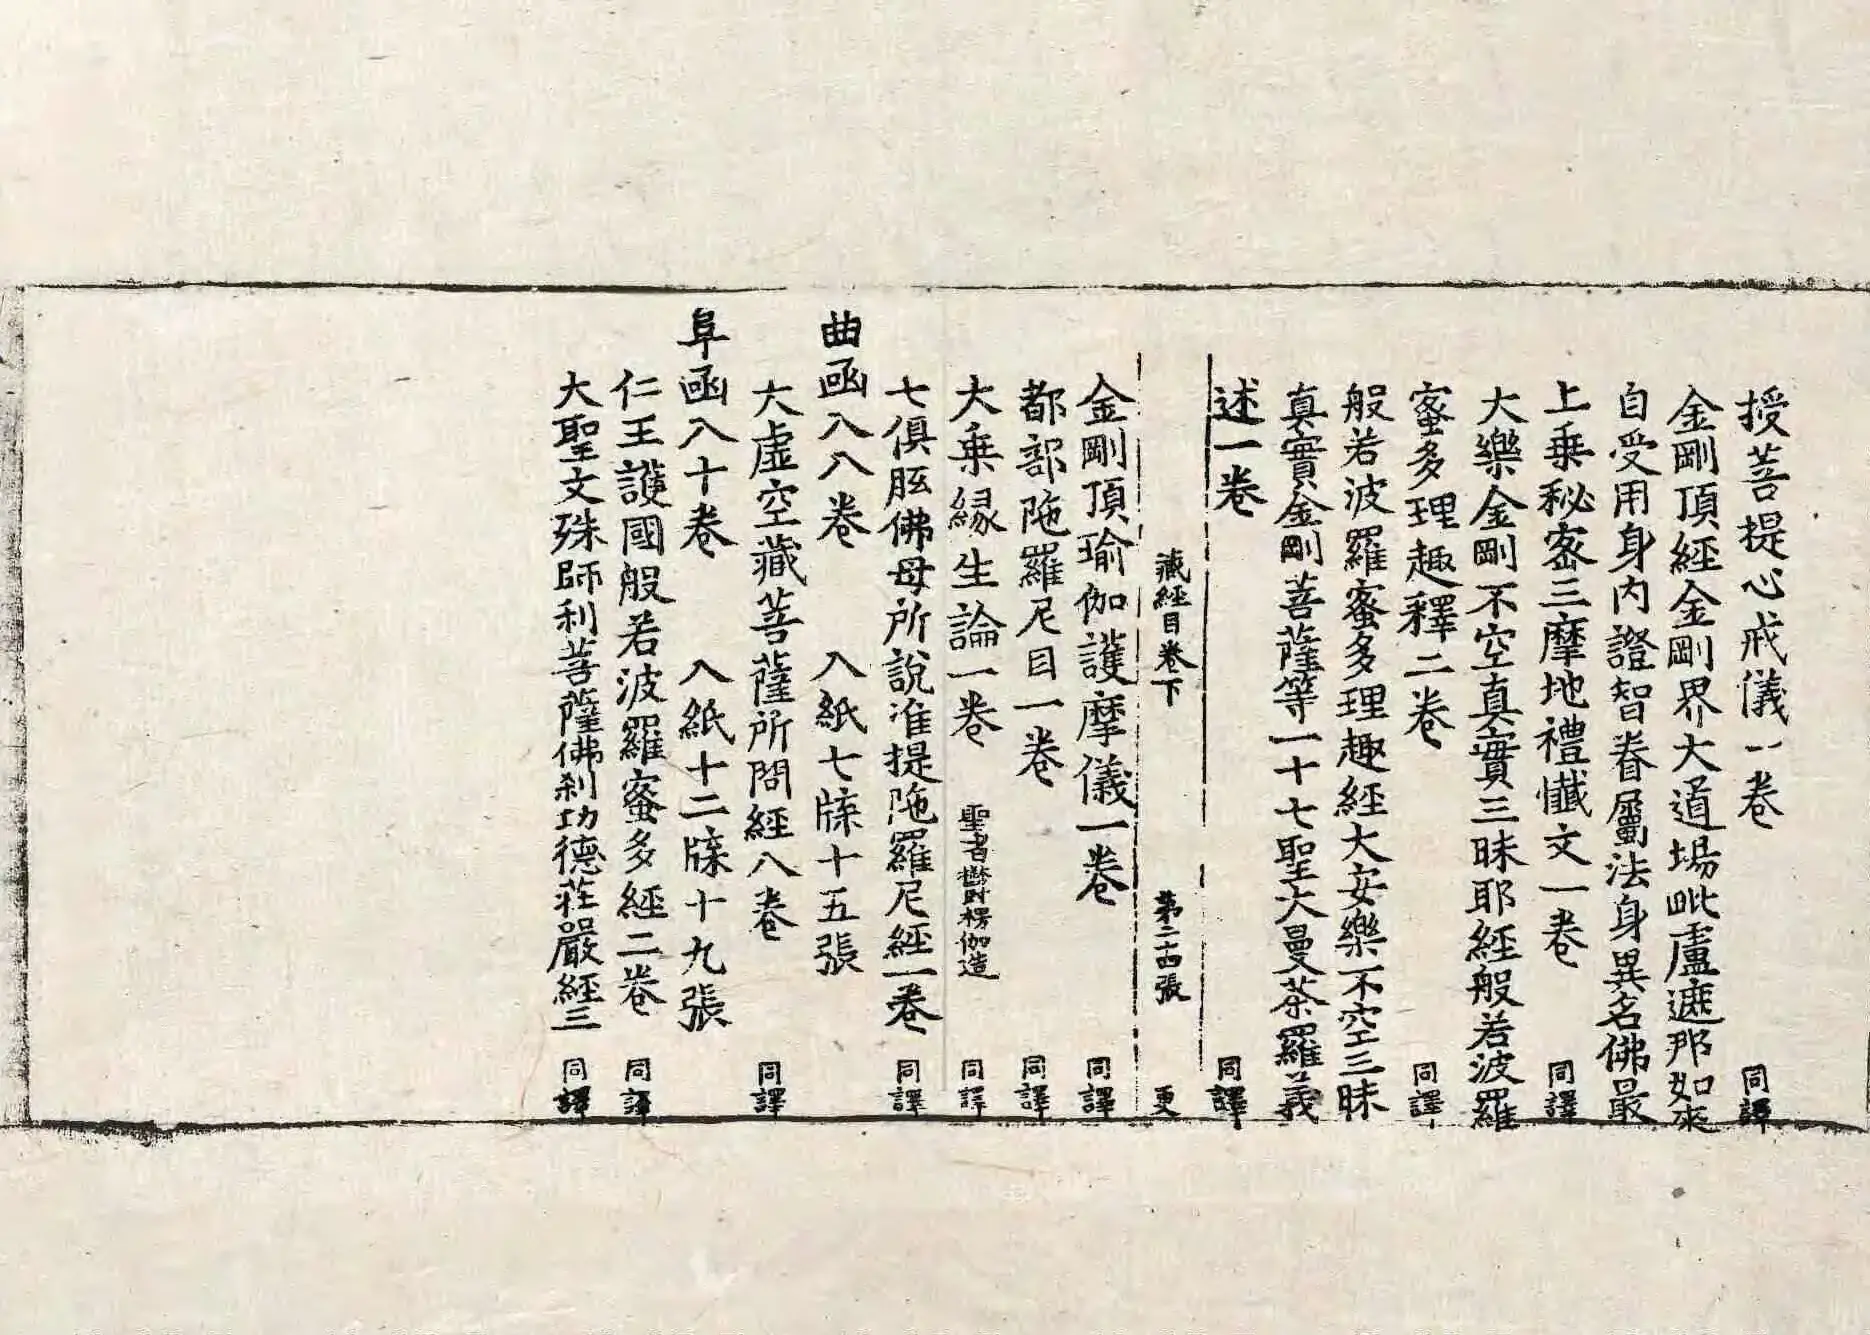 授菩提心戒儀一卷 同譯
金剛頂經金剛界大道場毗盧遮那如來
自受用身内證智眷屬法身異名佛最
上乗秘密三摩地禮懺文一卷 同譯
大樂金剛不空真實三昧耶經般若波羅
蜜多理趣釋二卷 同譯
般若波羅蜜多理趣經大安樂不空三昧
真實金剛菩薩等一十七聖大曼茶羅義
述一卷 同譯
藏經目卷下 第二十四張 更
金剛頂瑜伽護摩儀一卷 同譯
都部陁羅尼目一卷 同譯
大乗縁生論一卷 聖者欝楞伽造 同譯
七俱胝佛母所說准提陁羅尼經一卷 同譯
曲函八八卷 入紙七牒十五張
大虚空藏菩薩所問經八卷 同譯
阜函八十卷 入紙十二牒十九張
仁王護國般若波羅蜜多經二卷 同譯
大聖文殊師利菩薩佛剎功德莊嚴經三 同譯